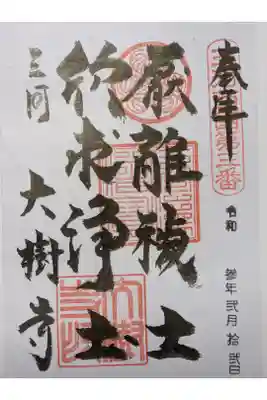 奉拝
令和 参年 弐月 拾弐日
厭離穢土
欣求浄土
三河 大樹寺